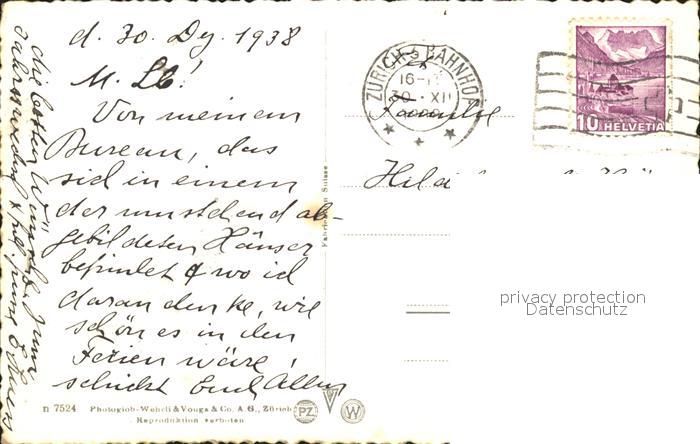 d. 30. Dez. 1938
M. Lb!
Von meinem
Bureau, das
sich in einem
der umstehend ab-
gebildeten Häuser
befindet & wo ich
daran denke, wie
schön es in den
Ferien wäre!
schickt Euch Allen
die besten Wünsche zum
Jahreswechsel
ZÜRICH 2 BAHNHOF
16-
30. XII
10 HELVETIA
Familie
Fabriqué en Suisse
n 7524 Photoglob-Wehrli & Vouga & Co. A. G., Zürich PZ W
Reproduktion verboten
privacy protection
Datenschutz